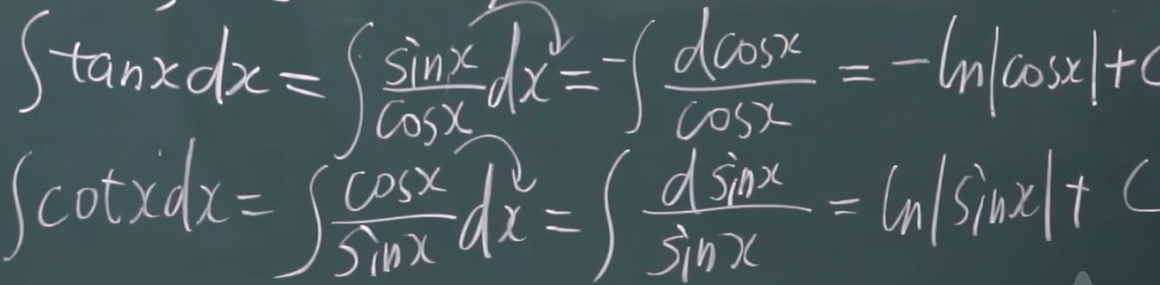 ∫tanxdx = ∫ sinx/cosx dx = -∫ dcosx/cosx = -ln|cosx|+C
∫cotxdx = ∫ cosx/sinx dx = ∫ dsinx/sinx = ln|sinx|+C